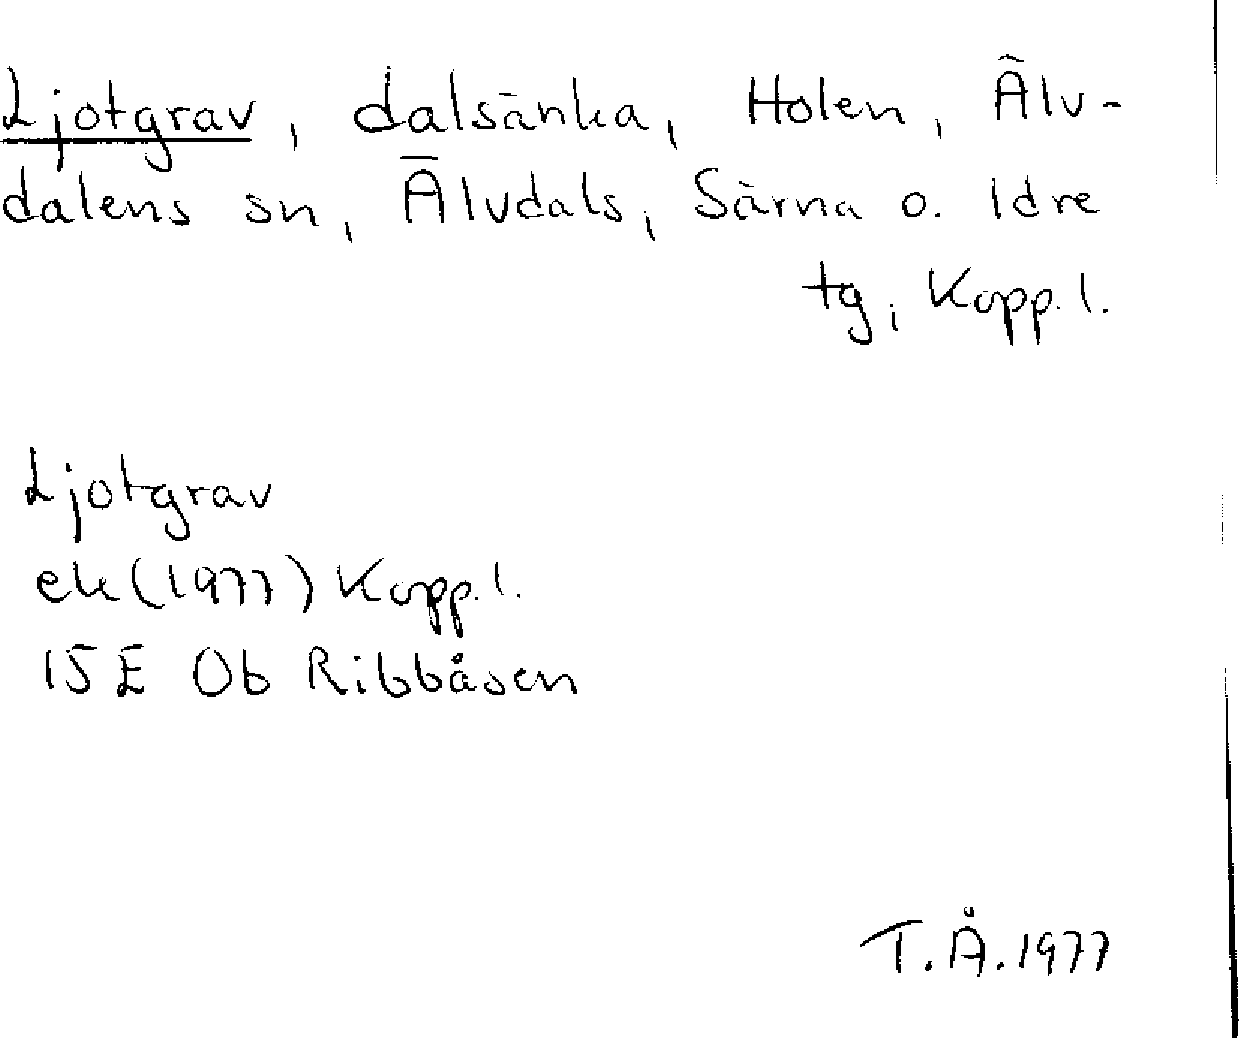 Ljotgrav, dalsänka, Holen, Älv-
dalens sn, Älvdals, Särna o. Idre
tg, Kopp.l.
Ljotgrav
ek (1977) Kopp.l.
15E Ob Ribbåsen
T.Å.1977